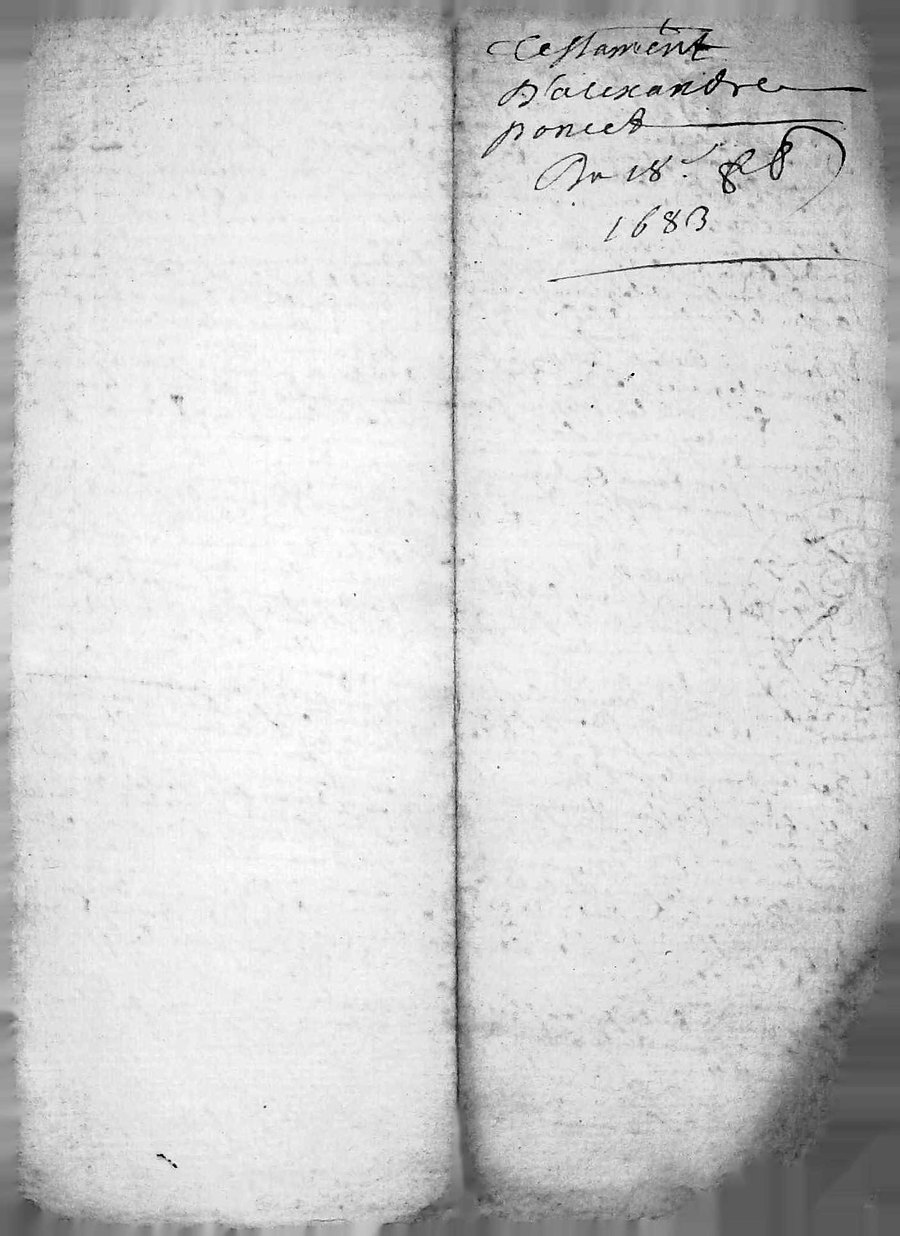 Testament
D'alexandre
poncet
Du 18e 8b
1683